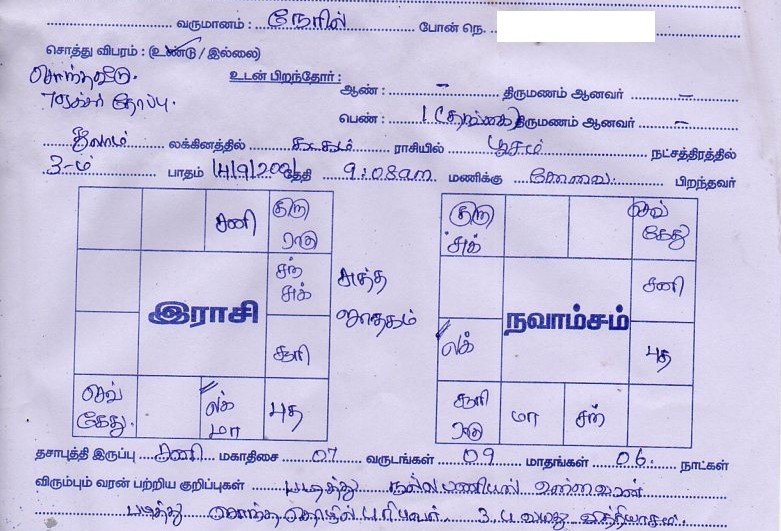 வருமானம் : நேரில் போன் நெ.
சொத்து விபரம் : (உண்டு / இல்லை)
சொந்தவீடு. உடன் பிறந்தோர் :
ஆண் : – திருமணம் ஆனவர் –
தோப்பு.
பெண் : 1 (தங்கை) திருமணம் ஆனவர் –
துலாம் லக்கினத்தில் கடகம் ராசியில் பூசம் நட்சத்திரத்தில்
3-ம் பாதம் 14/9/2001 தேதி 9:08am மணிக்கு கோவை பிறந்தவர்
சனி குரு ராகு
சந் சுக்
இராசி
சூரி
செவ் கேது. லக் மா புத
சுத்த ஜாதகம்
குரு சுக் செவ் கேது
சனி
நவாம்சம்
லக் புத
சூரி ராகு மா சந்
தசாபுத்தி இருப்பு சனி மகாதிசை 07 வருடங்கள் 09 மாதங்கள் 06 நாட்கள்
விரும்பும் வரன் பற்றிய குறிப்புகள் படித்து நல்ல பணியில் உள்ளவர்
படித்து சொந்த தொழில் புரிபவர் 3 வயது வித்தியாசம்